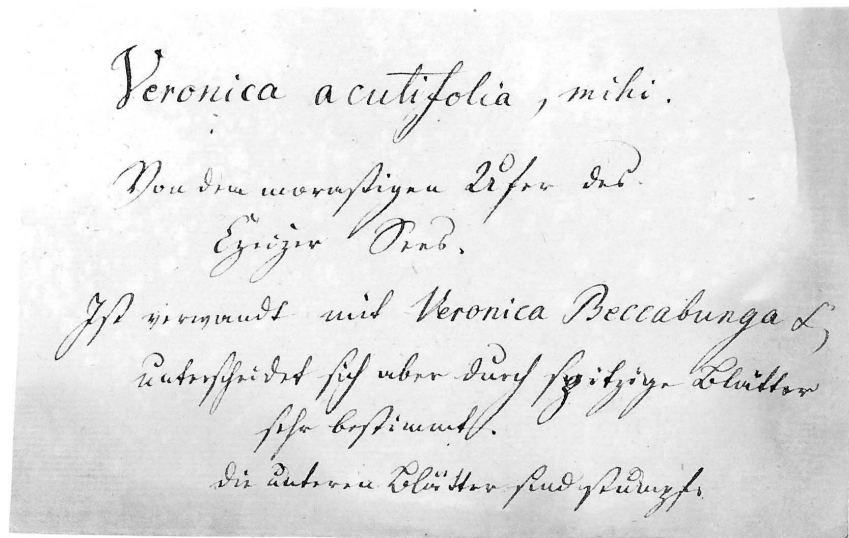 Veronica acutifolia, mihi.
Von dem morastigen Ufer des
Sees.
Ist verwandt mit Veronica Beccabunga L,
unterscheidet sich aber durch spitzige Blätter
sehr bestimmt.
die unteren Blätter sind stumpf.